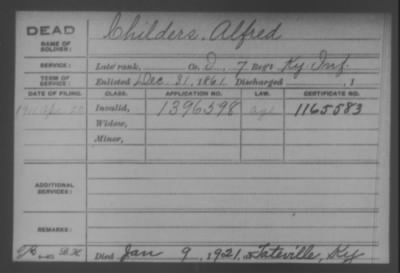 DEAD
NAME OF SOLDIER:
Childers, Alfred
SERVICE: Late rank, Co. D, 7 Reg't Ky Inf.
TERM OF SERVICE: Enlisted Dec. 31, 1861. Discharged , 1
DATE OF FILING. CLASS. APPLICATION NO. LAW. CERTIFICATE NO.
Invalid, 1396598 age 1165583
Widow,
Minor,
ADDITIONAL SERVICES:
REMARKS:
Died Jan 9, 1921, at Tateville, Ky